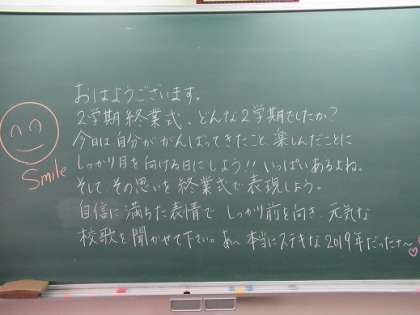 おはようございます。
2学期終業式、どんな2学期でしたか?
今日は自分ががんばってきたこと、楽しんだことに
しっかり目を向ける日にしよう!! いっぱいあるよね。
そして、その思いを終業式で表現しよう。
自信に満ちた表情で しっかり前を向き、元気な
校歌を聞かせて下さい。あ〜本当にステキな2019年だったナ〜
Smile